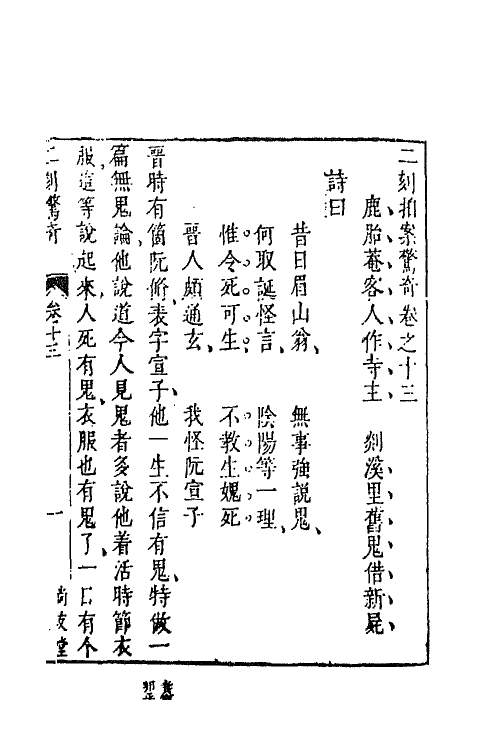 二刻拍案驚奇卷之十三
鹿胎菴客人作寺主　剡溪里舊鬼借新屍
詩曰
昔日眉山翁、　無事強說鬼、
何取誕怪言、　陰陽等一理、
惟令死可生、　不教生媿死
晉人頗通玄、　我怪阮宣子
晉時有箇阮脩、表字宣子、他一生不信有鬼、特做一
篇無鬼論、他說道今人見鬼者多說他着活時節衣
服、這等說起來、人死有鬼、衣服也有鬼了、一日有个
二刻驚奇　卷十三　一　尚友堂